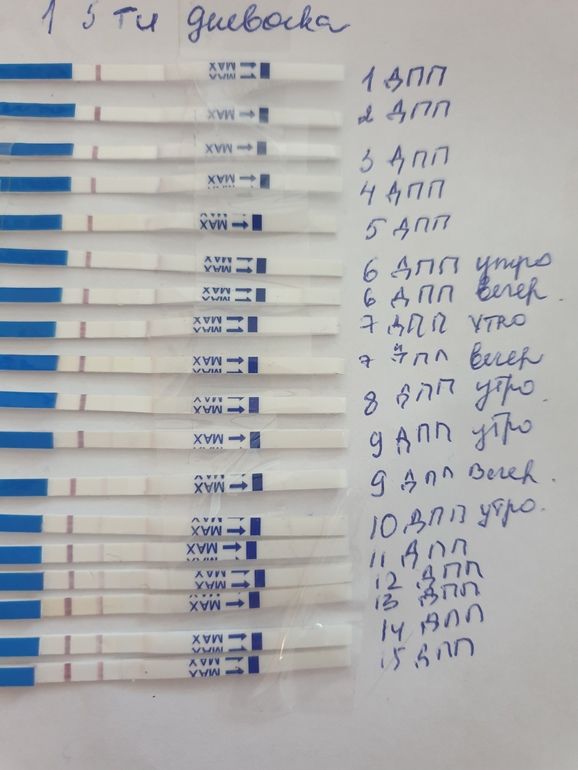 1 5 ти дневока
MAX 1 ДПП
MAX 2 ДПП
MAX 3 ДПП
MAX 4 ДПП
MAX 5 ДПП
MAX 6 ДПП утро
MAX 6 ДПП вечер.
MAX 7 ДПП утро
MAX 7 ДПП вечер
MAX 8 ДПП утро
MAX 9 ДПП утро
MAX 9 ДПП вечер.
MAX 10 ДПП утро.
MAX 11 ДПП
MAX 12 ДПП
MAX 13 ДПП
MAX 14 ДПП
MAX 15 ДПП